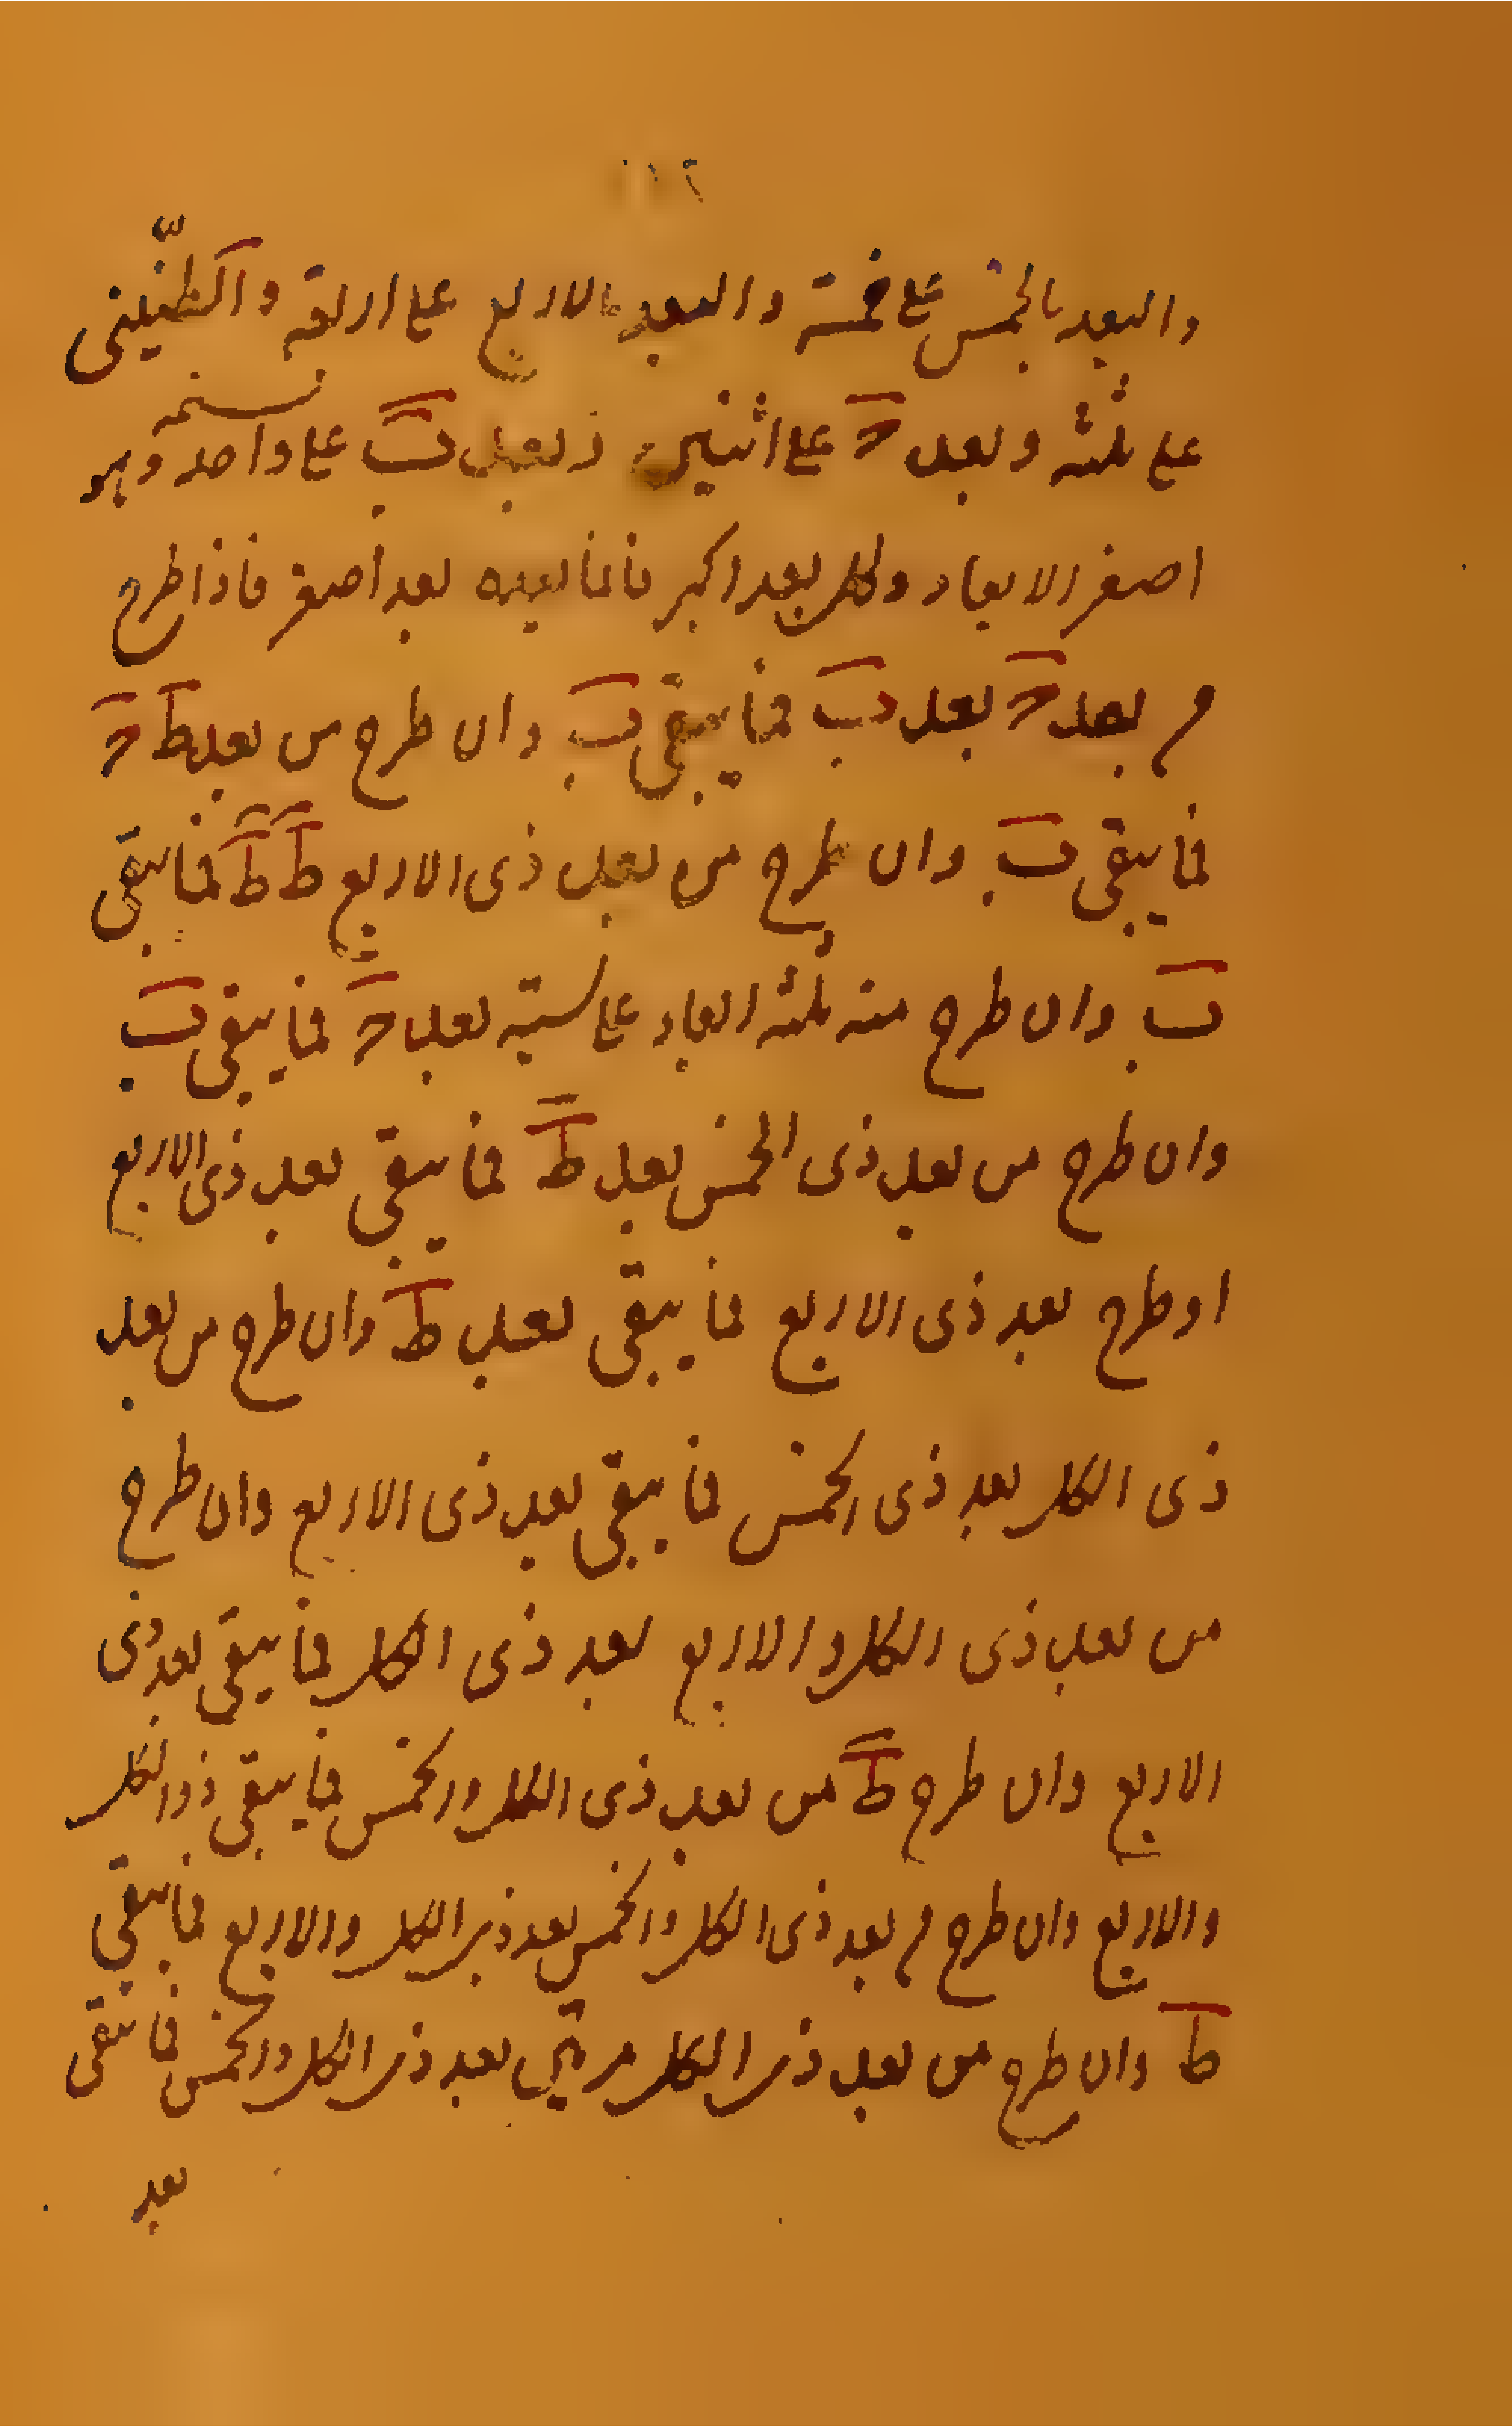 والبعد بالخمس على خمسة والبعد بالاربع على اربعة والطنينى
على ثلثة وبعد ج على اثنين وبعد ب على واحد وهو
اصغر الابعاد وكل بعد اكبر فانما يعده بعد اصغر فاذا طرح
من بعد ج بعد ب فما يبقى ب وان طرح من بعد ط ج
فما يبقى ب وان طرح من بعد ذى الاربع ط ط فما يبقى
ب وان طرح منه ثلثة ابعاد على ستة بعد ج فما يبقى ب
وان طرح من بعد ذى الخمس بعد ط فما يبقى بعد ذى الاربع
او طرح بعد ذى الاربع فما يبقى بعد ط وان طرح من بعد
ذى الكل بعد ذى الخمس فما يبقى بعد ذى الاربع وان طرح
من بعد ذى الكل والاربع بعد ذى الكل فما يبقى بعد ذى
الاربع وان طرح ط من بعد ذى الكل والخمس فما يبقى ذو الكل
والاربع وان طرح من بعد ذى الكل والخمس بعد ذى الكل والاربع فما يبقى
ط وان طرح من بعد ذى الكل مرتين بعد ذى الكل والخمس فما يبقى
بعد